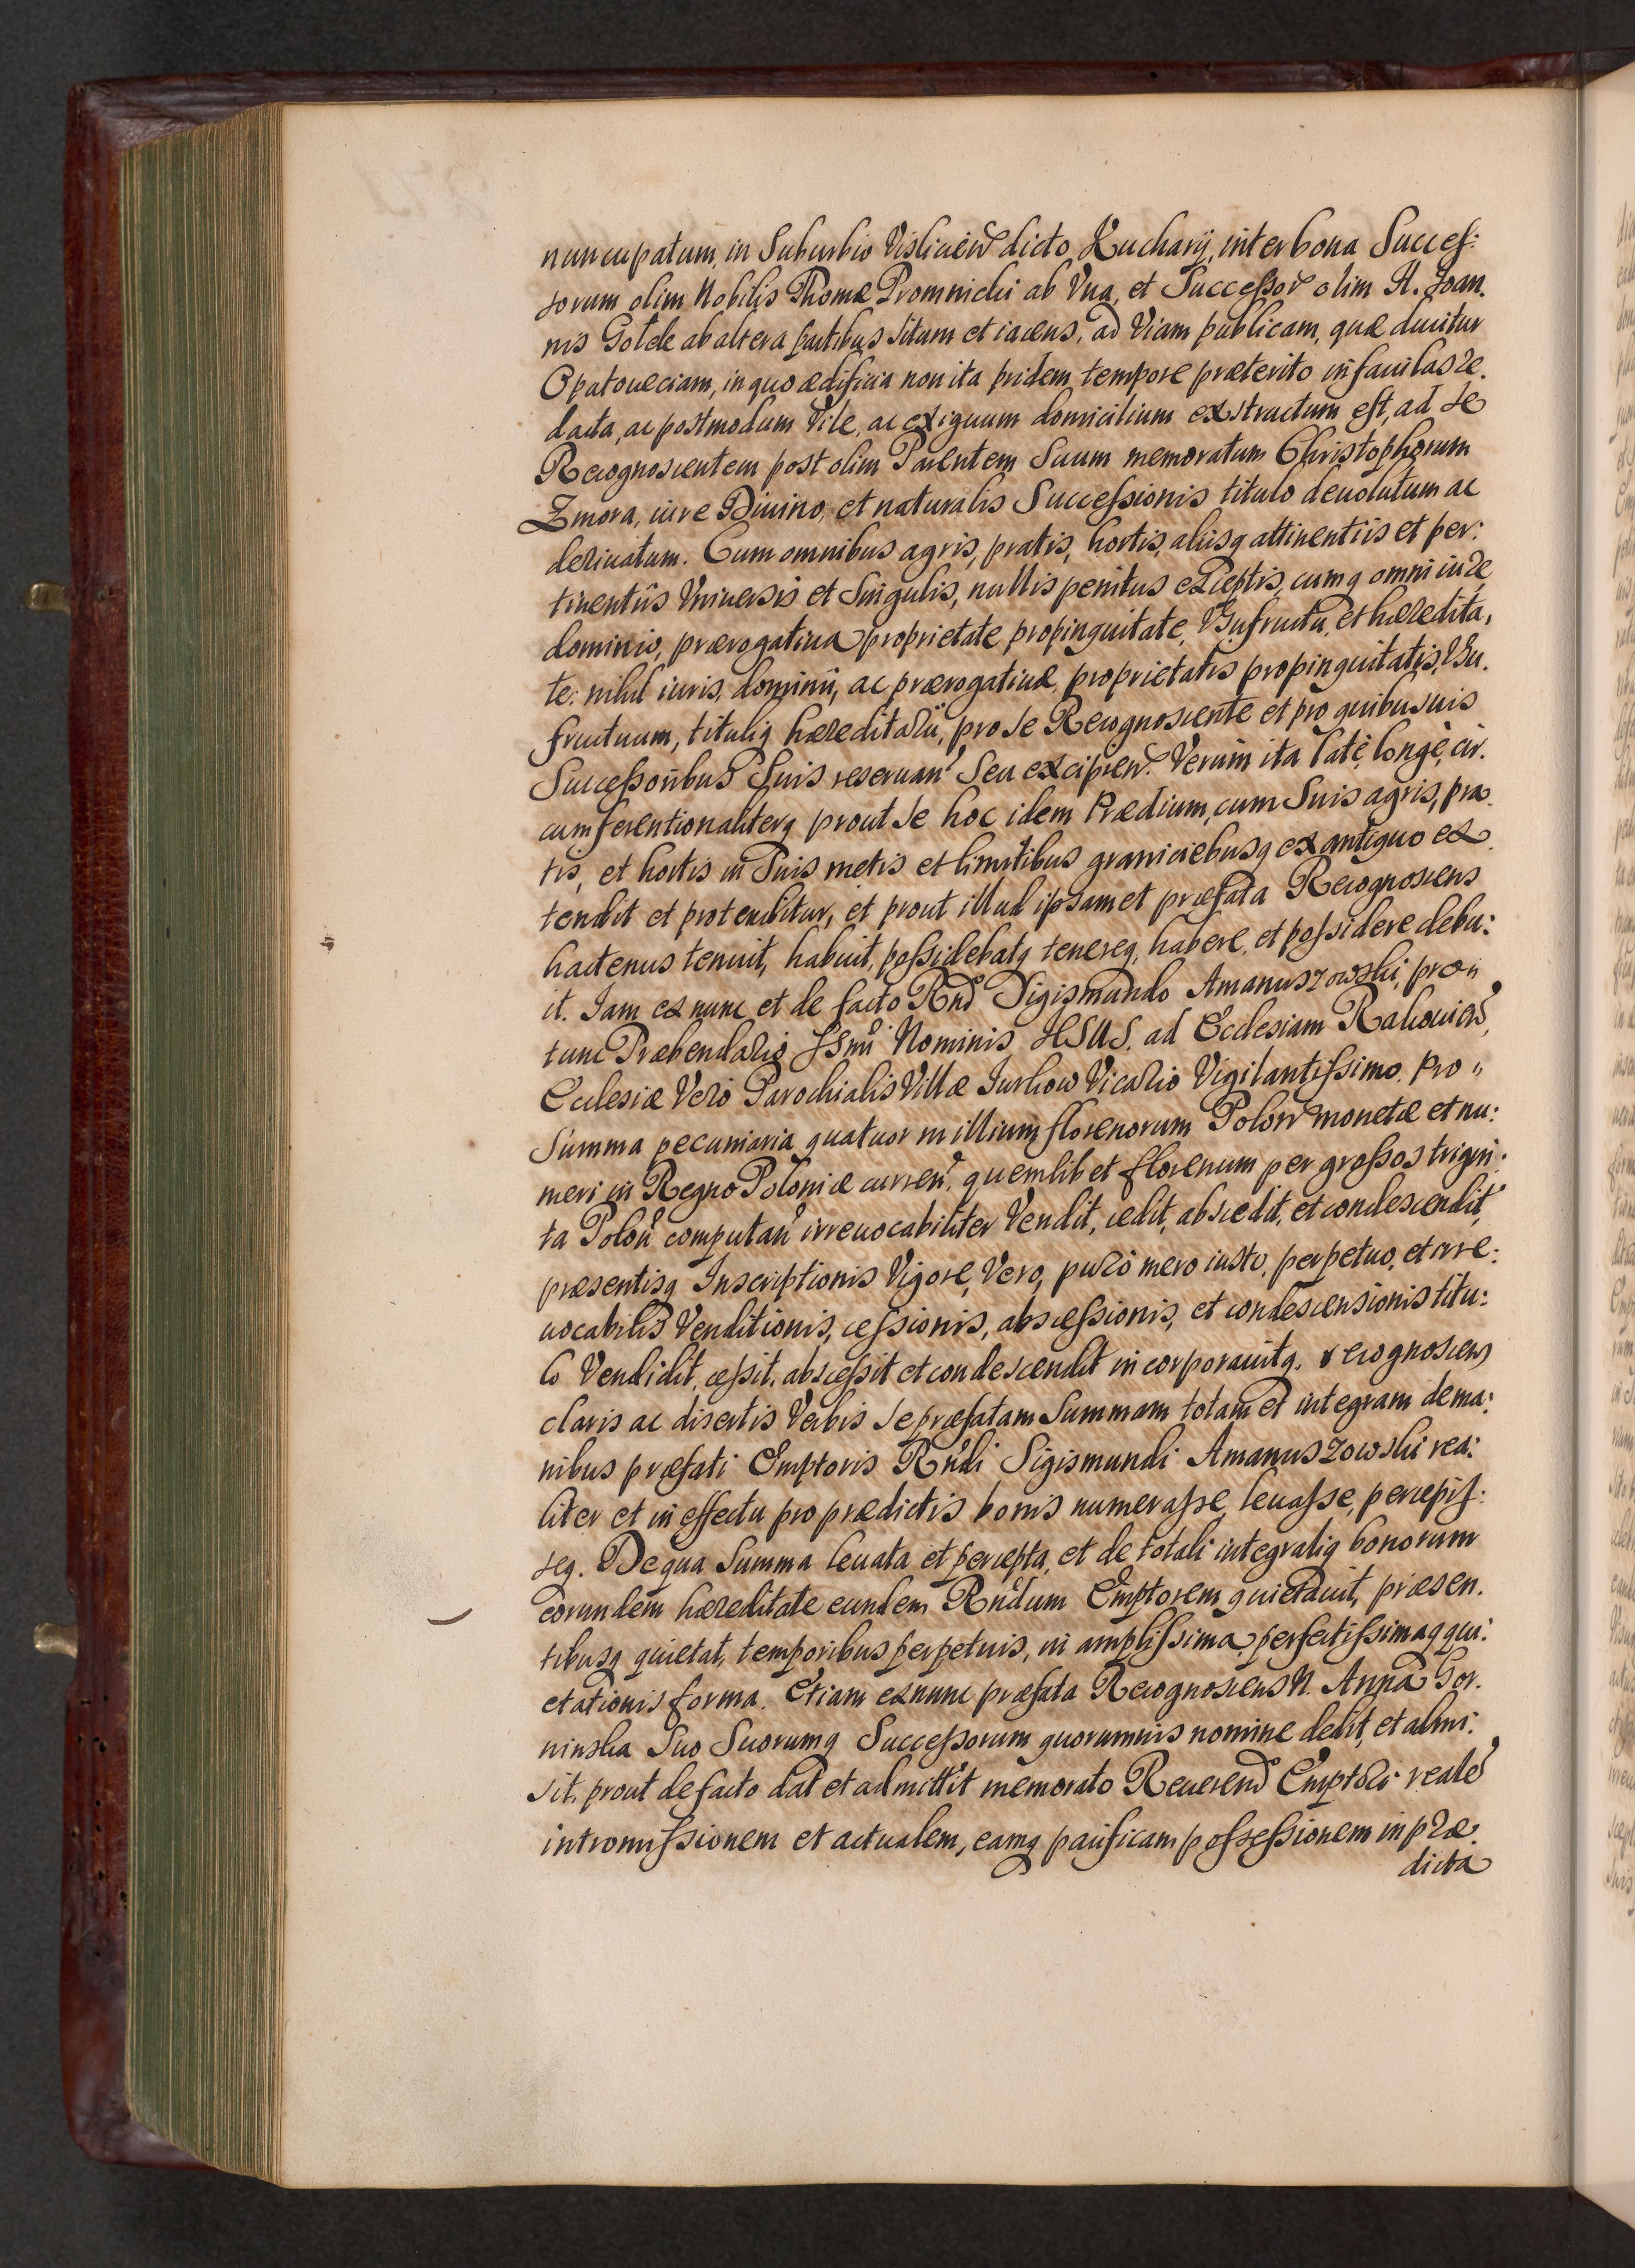 nuncupatum, in Suburbio Vislicien̄ dicto Kucharij, inter bona Succes:
sorum olim Nobilis Thomæ Promnicki ab Vna, et Successor̄ olim N. Joan.
nis Golde ab altera partibus situm et iacens, ad Viam publicam, quæ ducitur
Opatoueciam, in quo ædificia non ita pridem tempore præterito in fauillas re.
dacta, ac postmodum Vile, ac exiguum domicilium exstructum est, ad se
Recognoscentem post olim Parentem Suum memoratum Christophorum
Zmora, iure Diuino, et naturalis Successionis titulo deuolutum ac
deriuatum. Cum omnibus agris, pratis, hortis, alijsq attinentiis et per:
tinentiis Vniuersis et Singulis, nullis penitus exceptis, cumq omni iure
dominio, prærogatiua proprietate, propinquitate, Vsufructu, et hæredita,
te: nihil iuris, dominii, ac prærogatiuæ, proprietatis propinquitatis, Vsu.
fructuum, tituliq hæreditarii, pro se Recognoscente et pro quibusuis
Successoribus Suis reseruan̄ Seu excipien̄. Verùm ita latè, longè, cir.
cumferentionaliterq prout se hoc idem Prædium, cum Suis agris, pra.
tis, et hortis in Suis metis et limitibus graniciebusq ex antiquo ex.
tendit et protenditur, et prout illud ipsamet præfata Recognoscens
hactenus tenuit, habuit, possidebatq tenereq, habere, et possidere debu:
it. Iam ex nunc et de facto Rn̄d Sigismundo Amanuszowski, pro "
tunc Præbendario SSmi Nominis IESUS. ad Ecclesiam Rakouien̄,
Ecclesiæ Verò Parochialis Villæ Jurkow Vicario Vigilantissimo. Pro "
Summa pecuniaria quatuor millium florenorum Polon̄ monetæ et nu:
meri in Regno Poloniæ curren̄, quemlibet florenum per grossos trigin:
ta Polon̄ computan̄ irreuocabiliter Vendit, cedit, abscedit, et condescendit,
præsentisq Inscriptionis Vigore, Vero, purò mero iusto, perpetuo, et irre:
uocabilis Venditionis, cessionis, abscessionis, et condescensionis titu:
lo Vendidit, cessit, abscessit et condescendit incorporauitq. recognoscens
claris ac disertis Verbis se præfatam Summam totam et integram de ma:
nibus præfati Emptoris Rn̄di Sigismundi Amanuszowski rea:
liter et in effectu pro prædictis bonis numerasse, leuasse, percepis:
seq. De qua Summa leuata et percepta, et de totali integraliq bonorum
eorundem hæreditate eundem Rn̄dum Emptorem quietauit, præsen.
tibusq quietat, temporibus perpetuis, in amplissima, perfectissimaq qui:
etationis forma. Etiam ex nunc præfata Recognoscens N. Anna Gor.
ninska Suo Suorumq Successorum quorumuis nomine dedit, et admi:
sit, prout de facto dat et admittit memorato Reuerend̄ Emptori realē
intromissionem et actualem, eamq pacificam possessionem in præ.
dicta